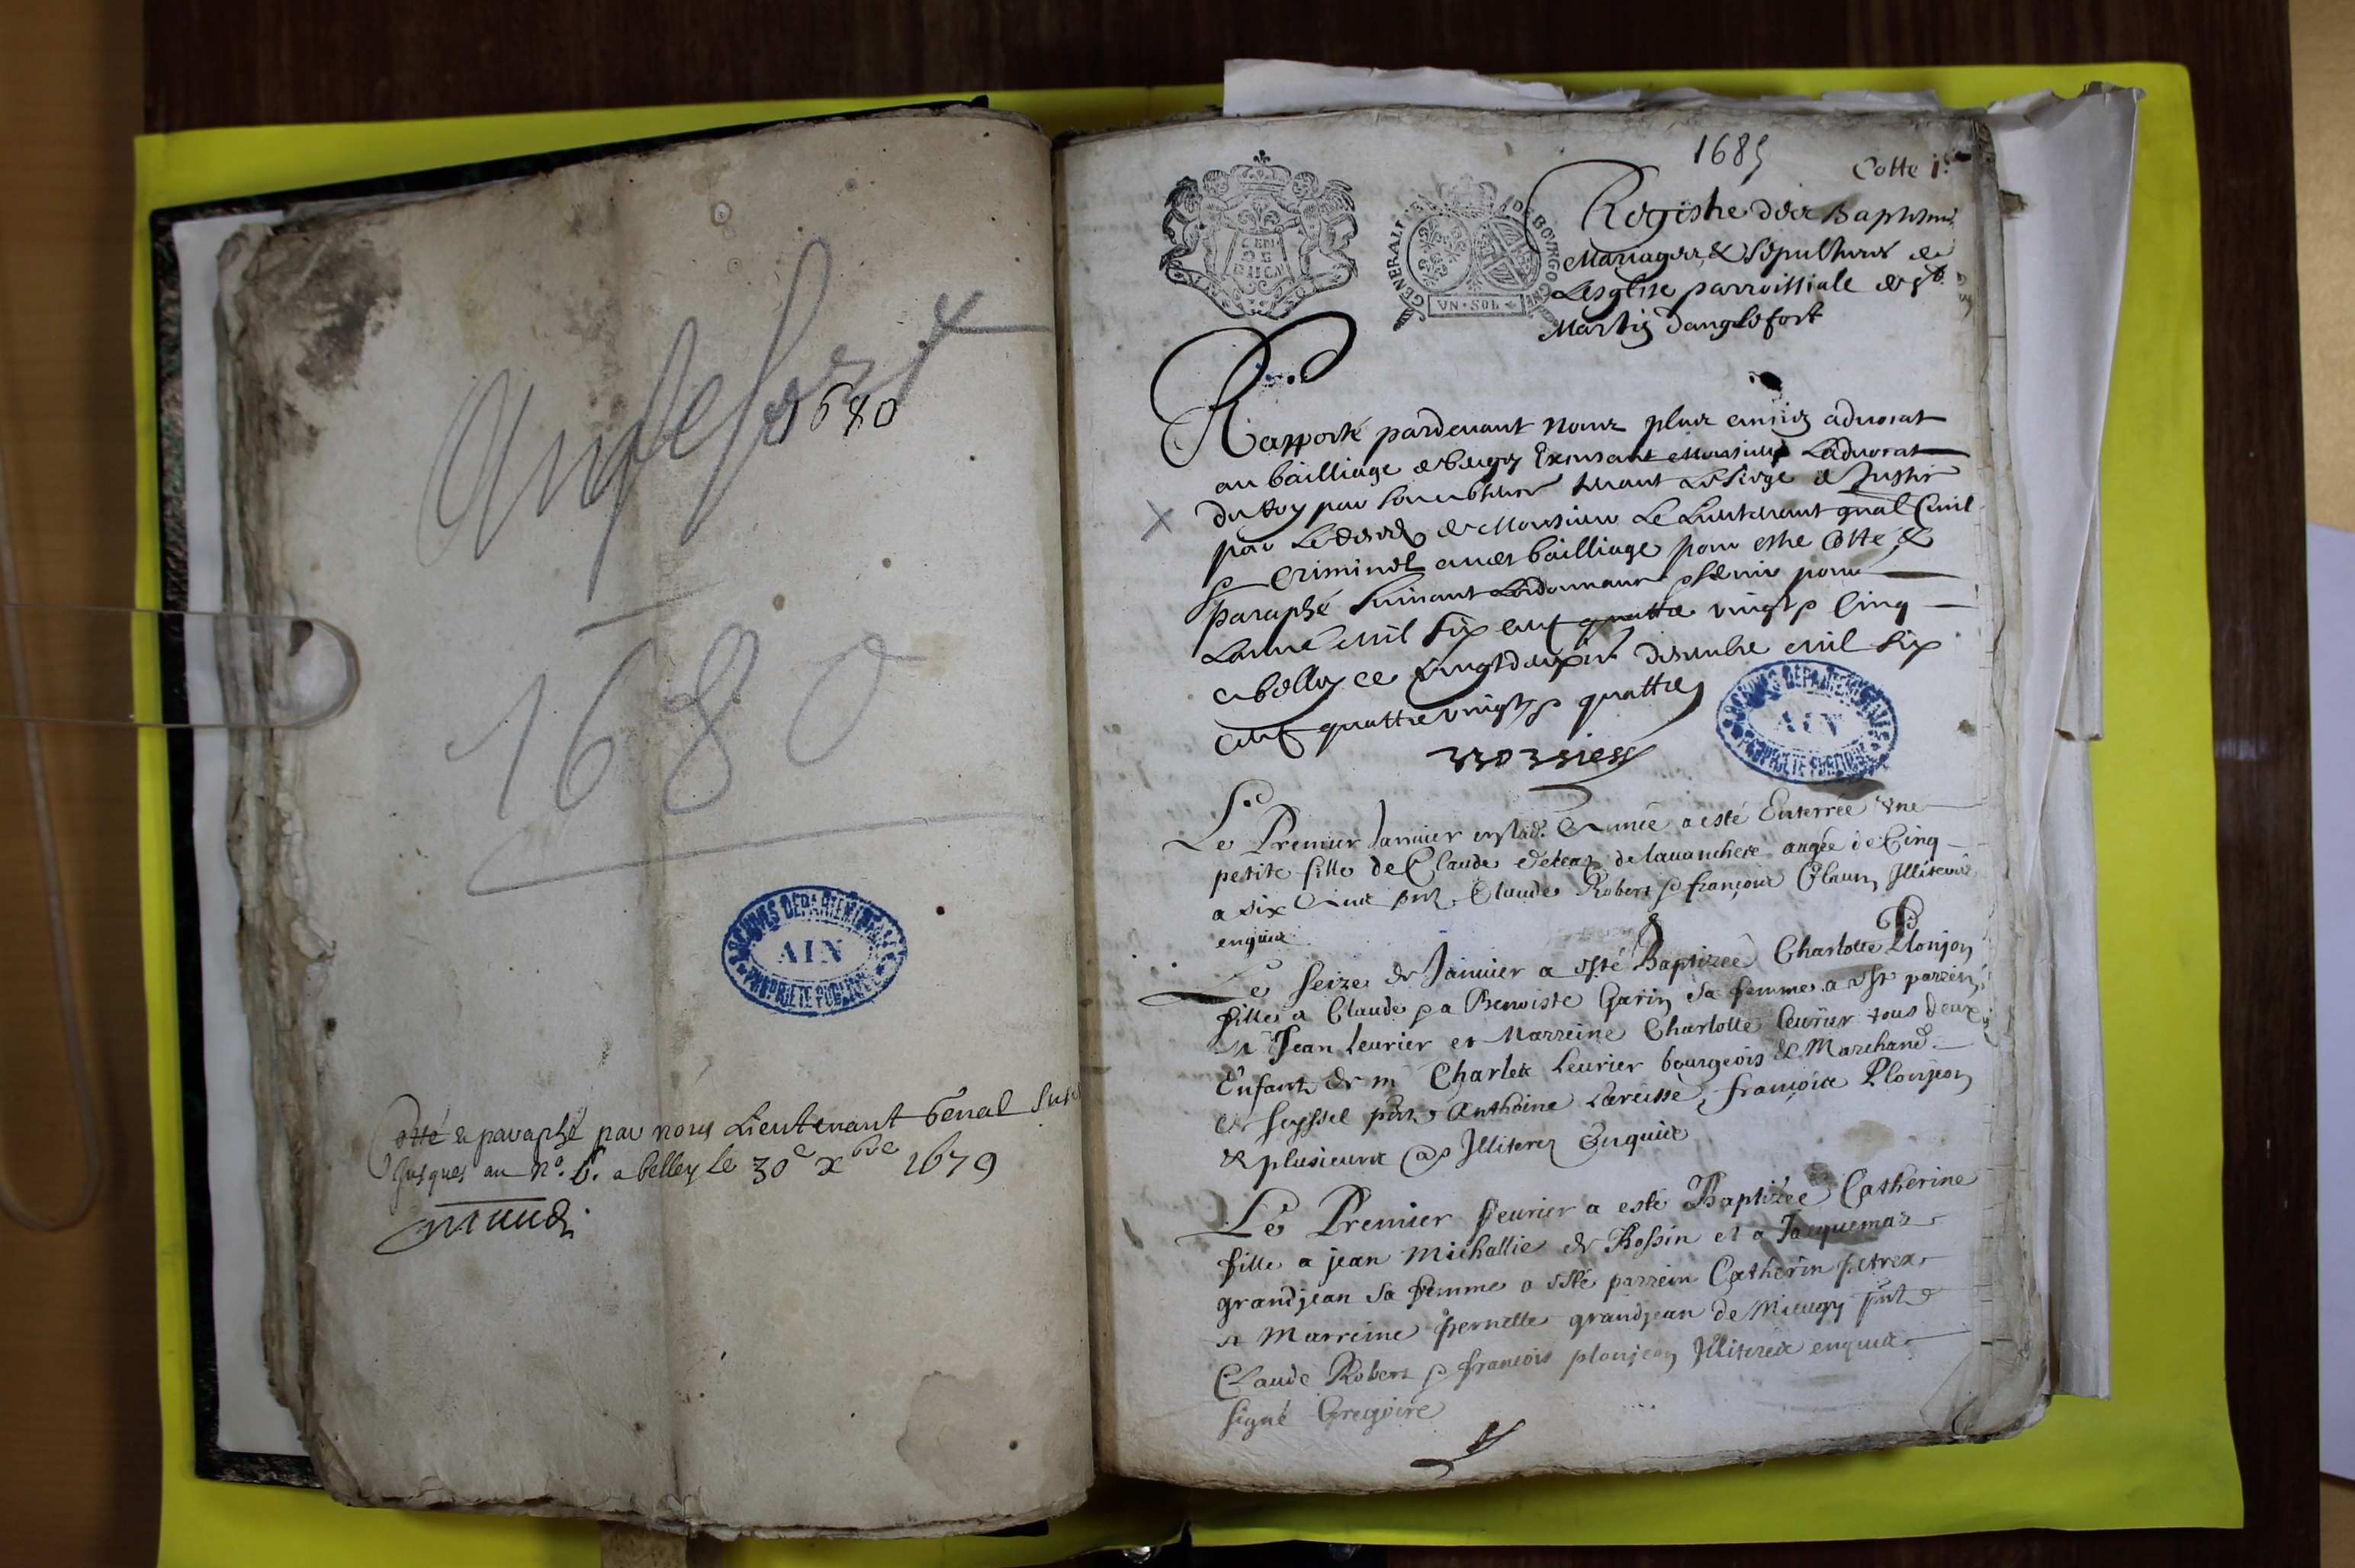 Anglefort
1680
1680
ARCHIVES DEPARTEMENTALES
AIN
PROPRIETE PUBLIQUE
Cotté & paraphé par nous Lieutenant Gënal
Jusques au n°. 6. a belley le 30e xbre 1679
1685
Cotte 1e
GENERALITE DE BOVRGOGNE
VN·SOL
Registre des Baptismes
Mariages & Sepultures de
Lesglise parroissiale de St
Martin danglefort
Rapporté pardevant nous plus antien advocat
au bailliage de beugey Exersant Monsieur Ladvocat
du Roy par son absence tenant Le siege de Justice
par Le deces de Monsieur Le Lieutenant gnal Civil
& Criminel audit bailliage pour estre Cotté &
paraphé suivant Lordonnance servir pour
Lannee mil six cent quatre vingts Cinq
a belley ce vingt deuxie decembre mil six
cent quattre vingts quattre
ARCHIVES DEPARTEMENTALES
AIN
PROPRIETE PUBLIQUE
Le Premier Janvier Année a esté Enterrée une
petite fille de Claude de lavanchere augée de Cinq
a six Ans pnt Claude Robert & françois Illiterés
enquis
Le Seize de Janvier a esté Baptizée Charlotte Plonjon
fille a Claude & a Benoiste Garin sa femme a esté parrein
Jean Leurier et Marreine Charlotte Leurier tous deux
Enfants de m Charles Leurier bourgeois & Marchand
de Seyssel pnts Anthoine françois Plonjeon
& plusieurs Illiteres Enquis
Le Premier feurier a esté Baptizée Catherine
fille a jean Michallie de Rossin et a Jaquemaz
grandjean sa femme a esté parrein Catherin petrex
et Marreine pernette grandjean de Mieugy pnts
Claude Robert & francois plonjeon Illiterés enquis
signé Gregoire